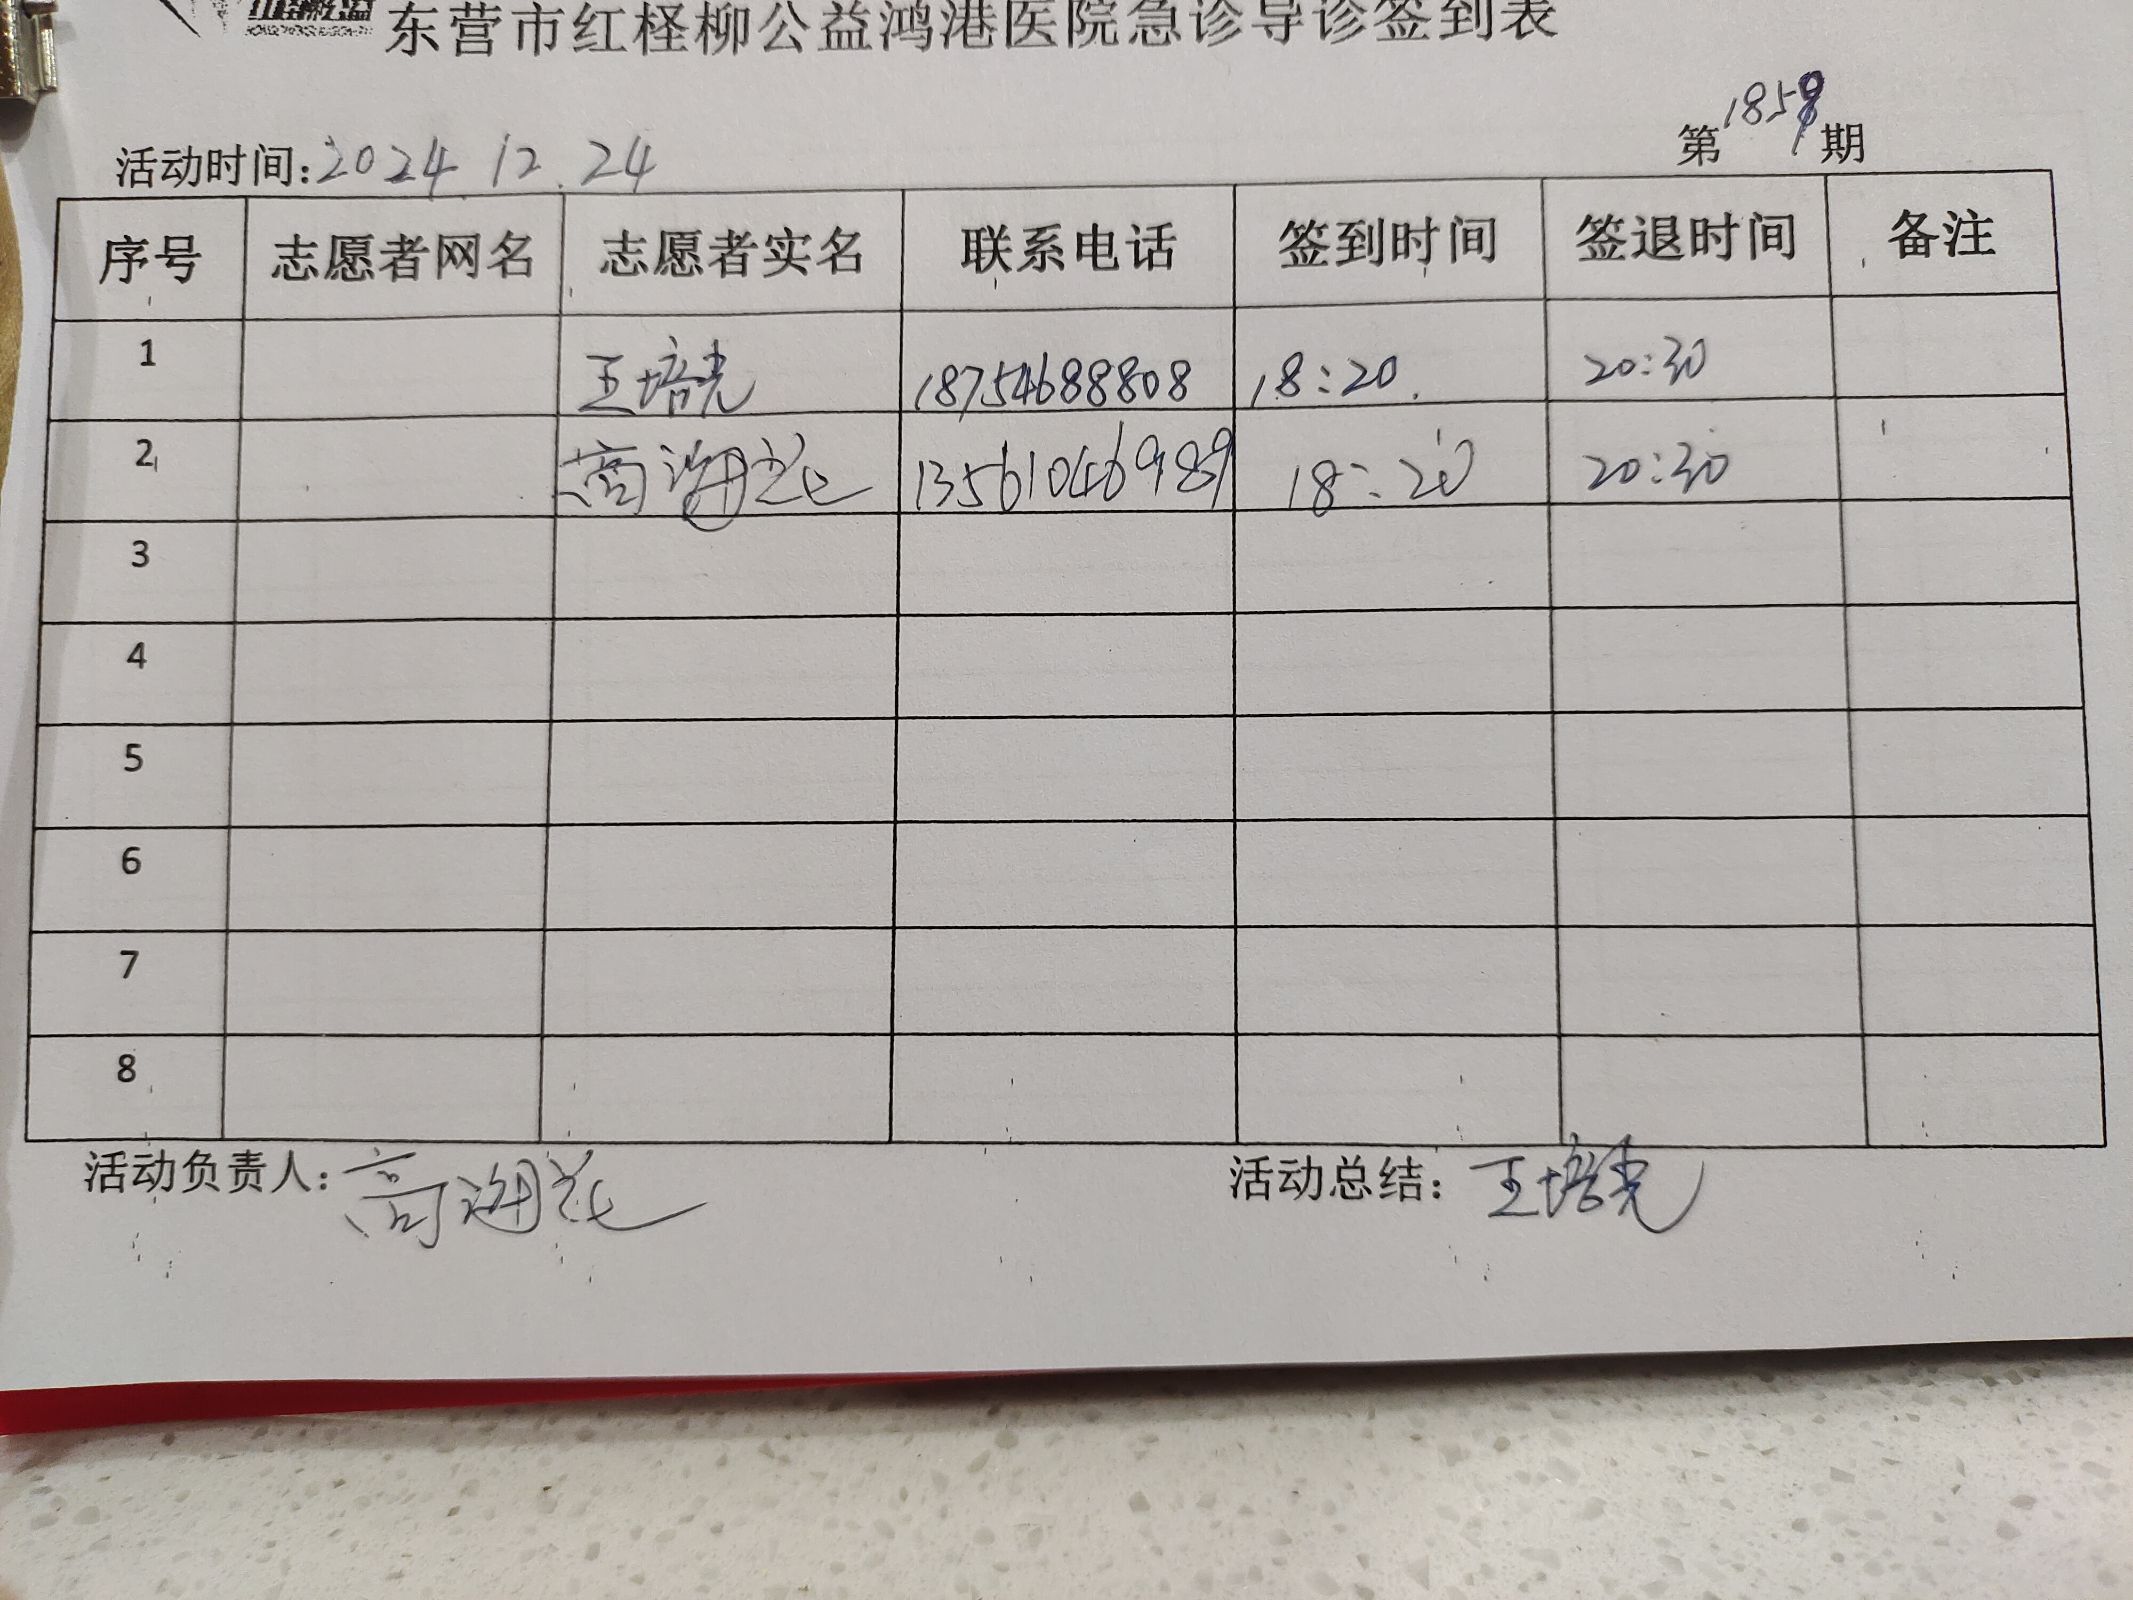 东营市红柽柳公益鸿港医院急诊导诊签到表
第1859期
活动时间:2024 12.24
序号 志愿者网名 志愿者实名 联系电话 签到时间 签退时间 备注
1 王培光 18754688808 18:20. 20:30
2 高海花 13561046989 18:20 20:30
3
4
5
6
7
8
活动负责人:高海花 活动总结:王培光